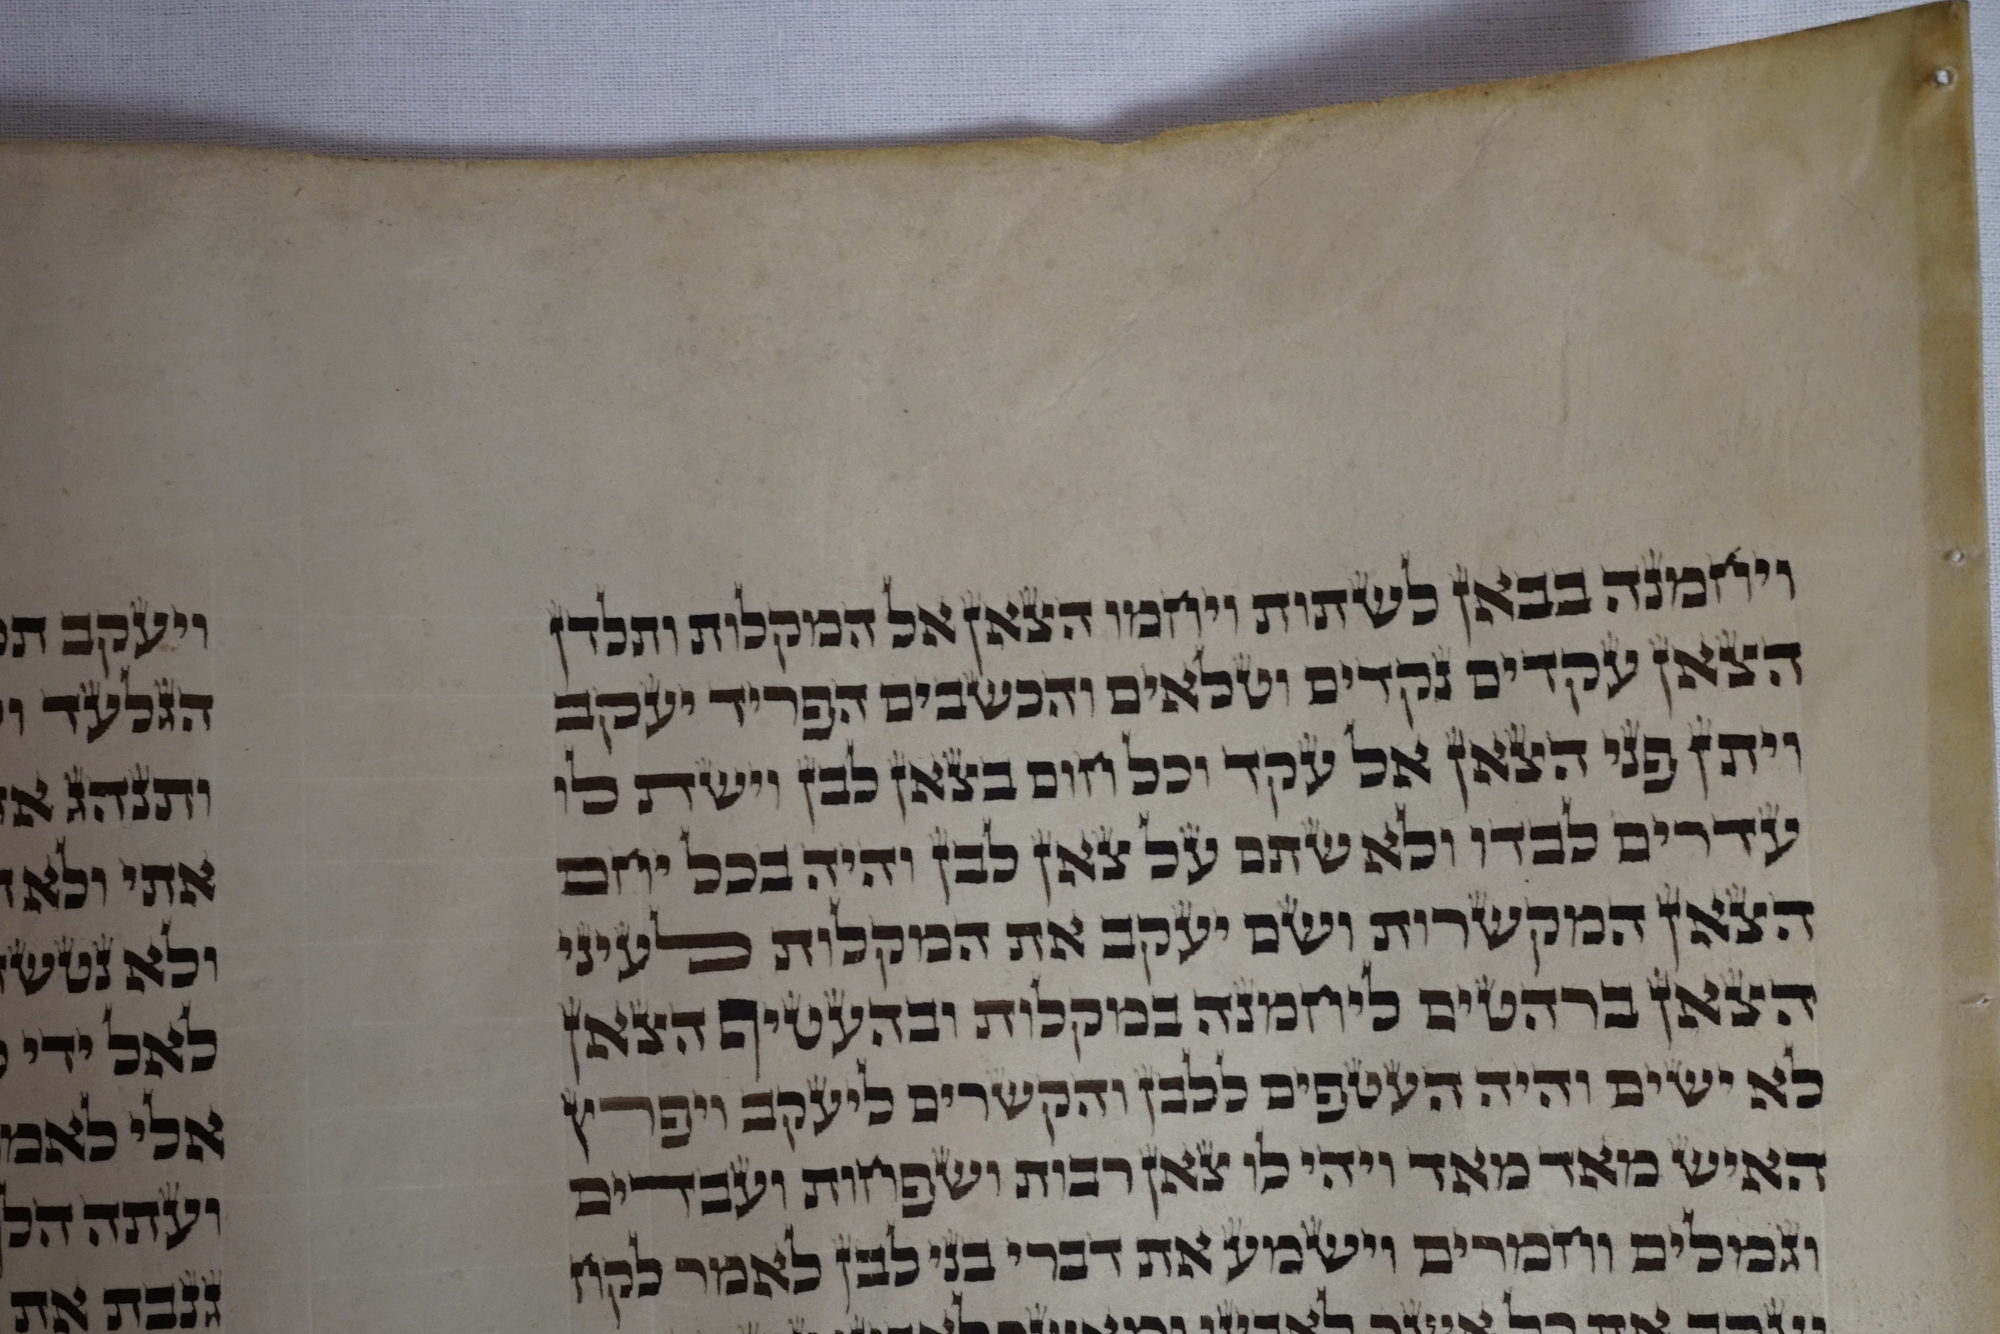 ויחמנה בבאן לשתות ויחמו הצאן אל המקלות ותלדן
הצאן עקדים נקדים וטלאים והכשבים הפריד יעקב
ויתן פני הצאן אל עקד וכל חום בצאן לבן וישת לו
עדרים לבדו ולא שתם על צאן לבן והיה בכל יחם
הצאן המקשרות ושם יעקב את המקלות לעיני
הצאן ברהטים ליחמנה במקלות ובהעטיף הצאן
לא ישים והיה העטפים ללבן והקשרים ליעקב ויפרץ
האיש מאד מאד ויהי לו צאן רבות ושפחות ועבדים
וגמלים וחמרים וישמע את דברי בני לבן לאמר לקח
יעקב את כל אשר לאבינו ומאשר לאבינו
ויעקב
הגלעד
ותנהג
אתי ולא
ולא
לאל ידי
אלי
ועתה
גנבת את